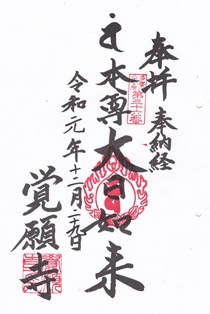 奉拝 奉納経
第三十六番
本尊大日如来
令和元年十二月二十九日
覚願寺